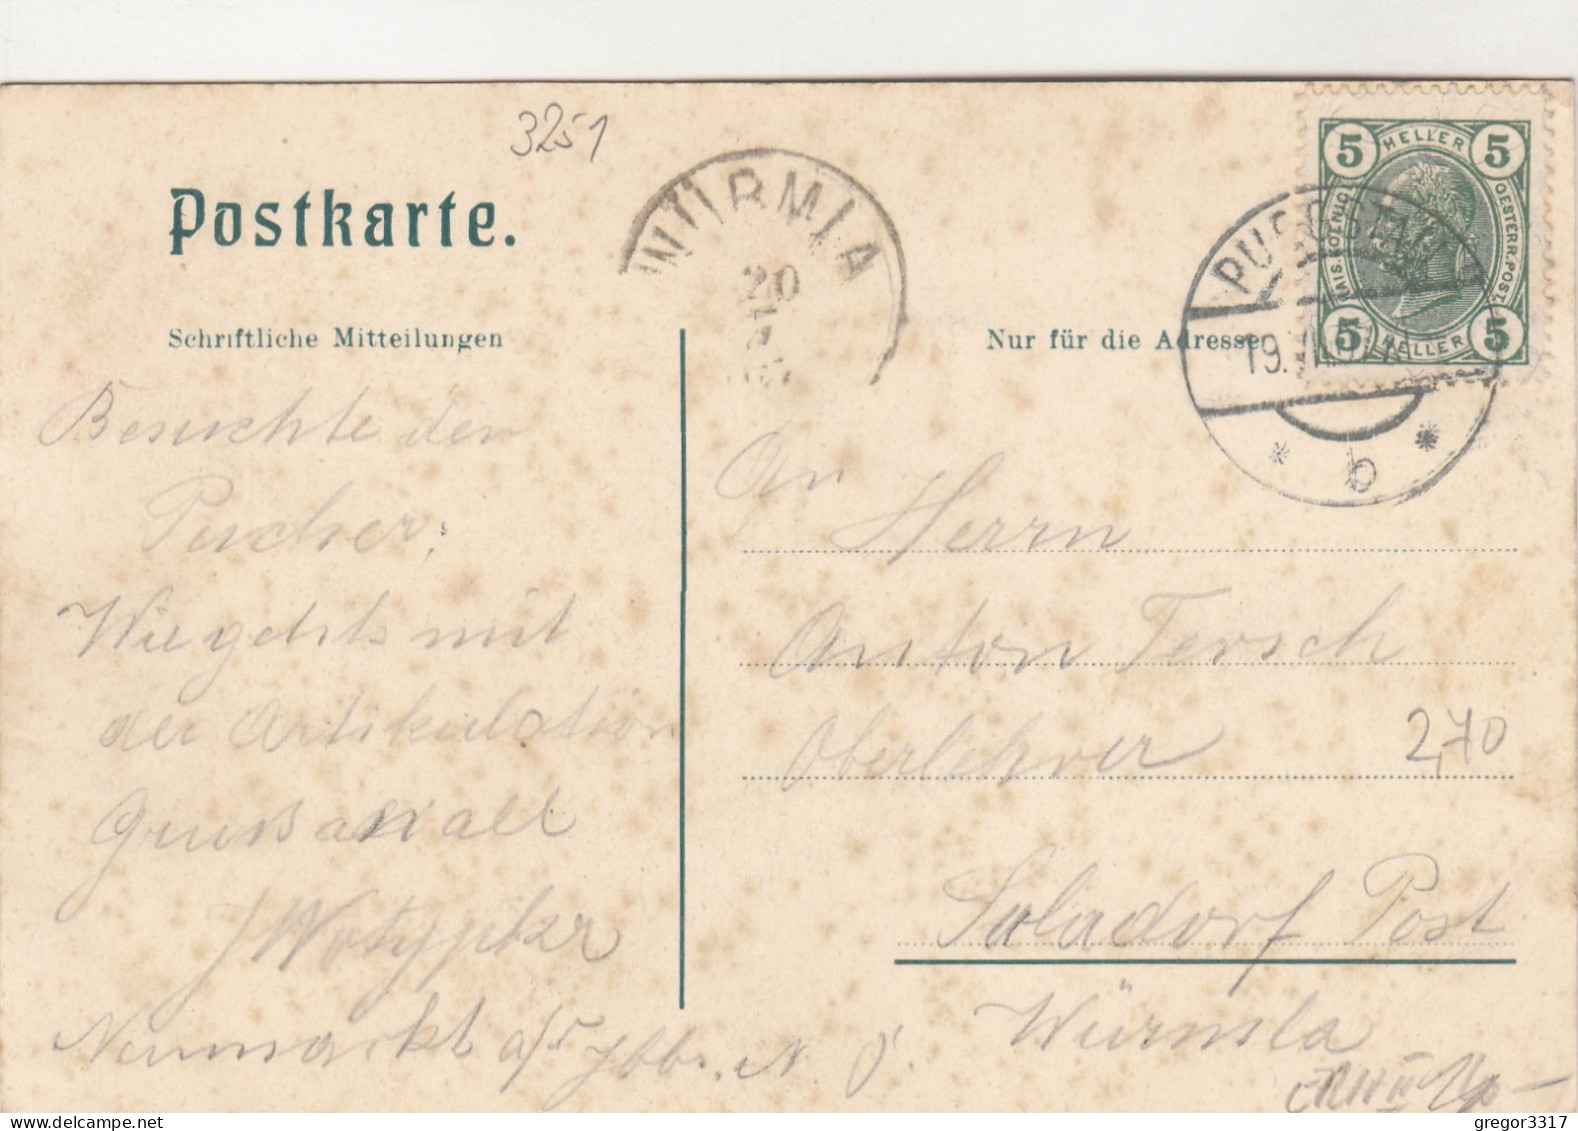 3251
Postkarte.
WÜRMLA
20
Schriftliche Mitteilungen
Nur für die Adresse
5 HELLER 5
KAIS. KOENIGL. OESTERR. POST.
5 HELLER 5
19.
b
Besuchte den
Pucher,
Wie gehts mit
der Artikulation
Gruß an alle
Neumarkt a/d Ybbs. N. Ö.
An Herrn
Anton Tersch
Oberlehrer
2,70
Saladorf Post
Würmla
gregor3317